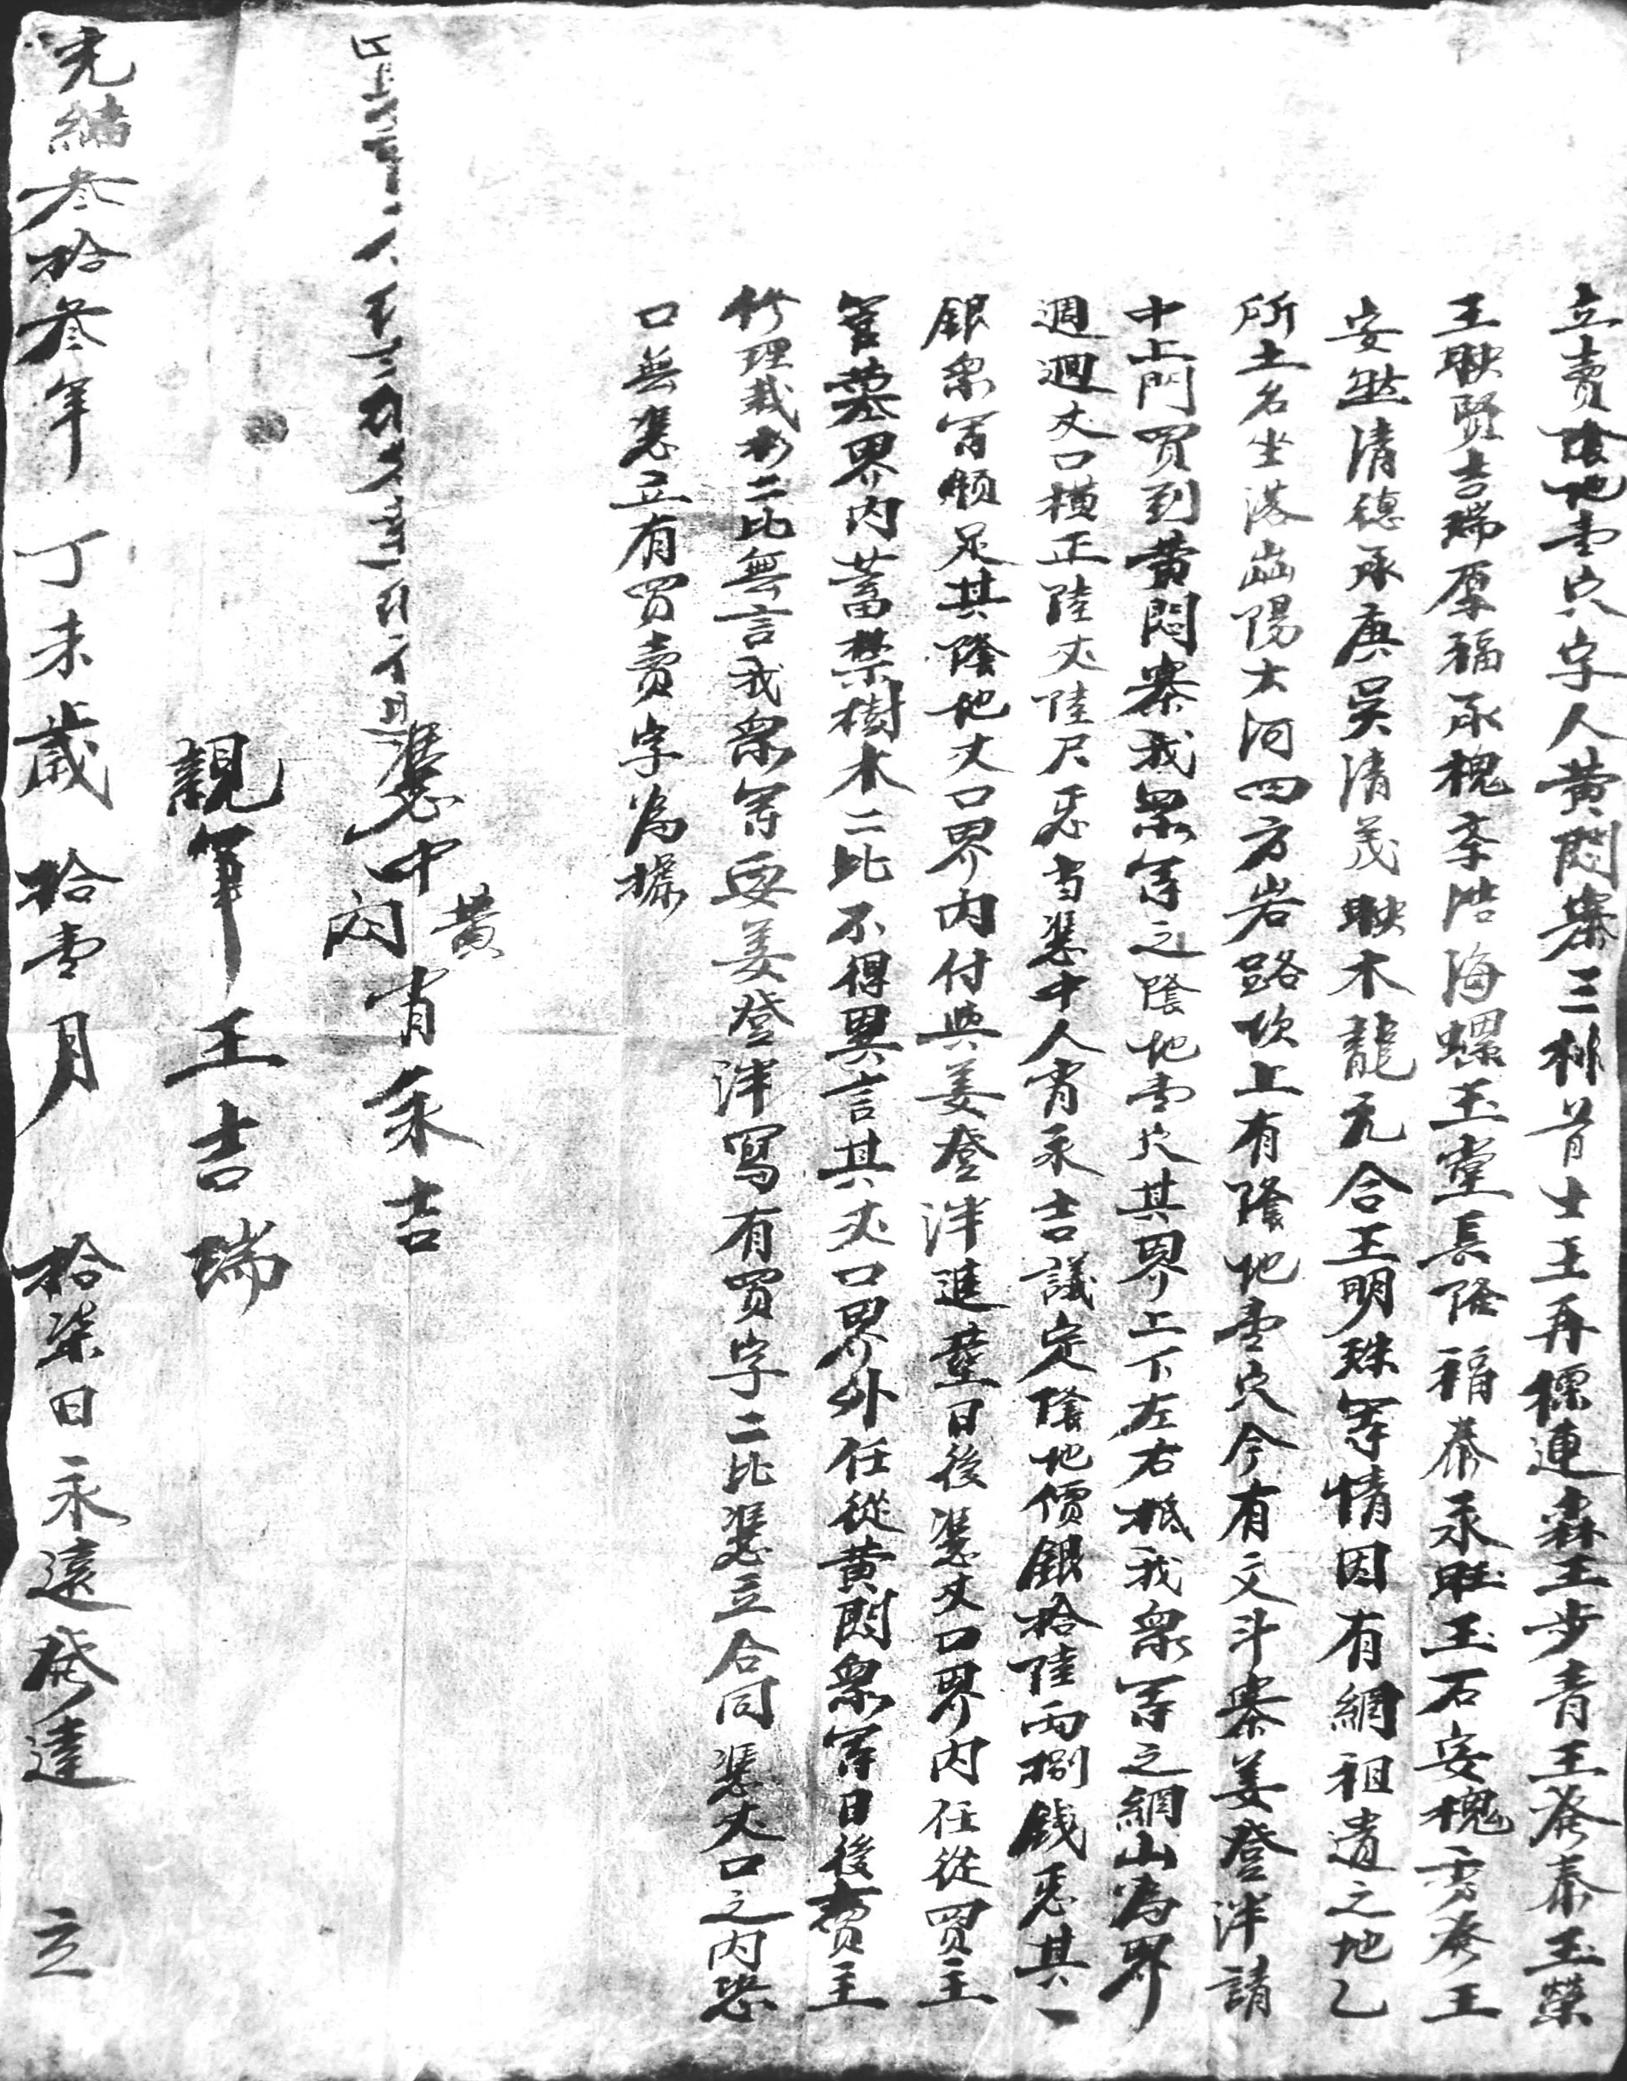 立賣陰地壹穴字人黃悶寨三排首士王再標連森王步青王發泰玉榮
王映賢吉瑞厚福承槐孝浩海螺玉堂長隆福泰永旺玉石安槐秀發王
安然清德承庚吳清茂映木龍元合王明珠等情因有綱祖遺之地乙
所土名坐落幽陽大河四方岩路坎上有陰地壹穴今有文斗寨姜登泮請
中上門買到黃悶寨我眾等之陰地壹穴其界上下左右抵我眾等之綱山為界
週迴丈口橫正陸丈陸尺悉當憑中人宵永吉議定陰地價銀拾陸兩捌錢悉其
銀眾等領足其陰地丈口界內付與姜登泮進塟日後憑丈口界內任從買主
管墓界內蓄禁樹木二比不得異言其丈口界外任從黃悶眾等日後賣主
修理栽杉二比無言我眾等要姜登泮寫有買字二比憑立合同憑丈口之內恐
口無憑立有買賣字為據
憑中
黃悶
宵永吉
親筆王吉瑞
光緒叁拾叁年丁未歲拾壹月拾柒日永遠發達立